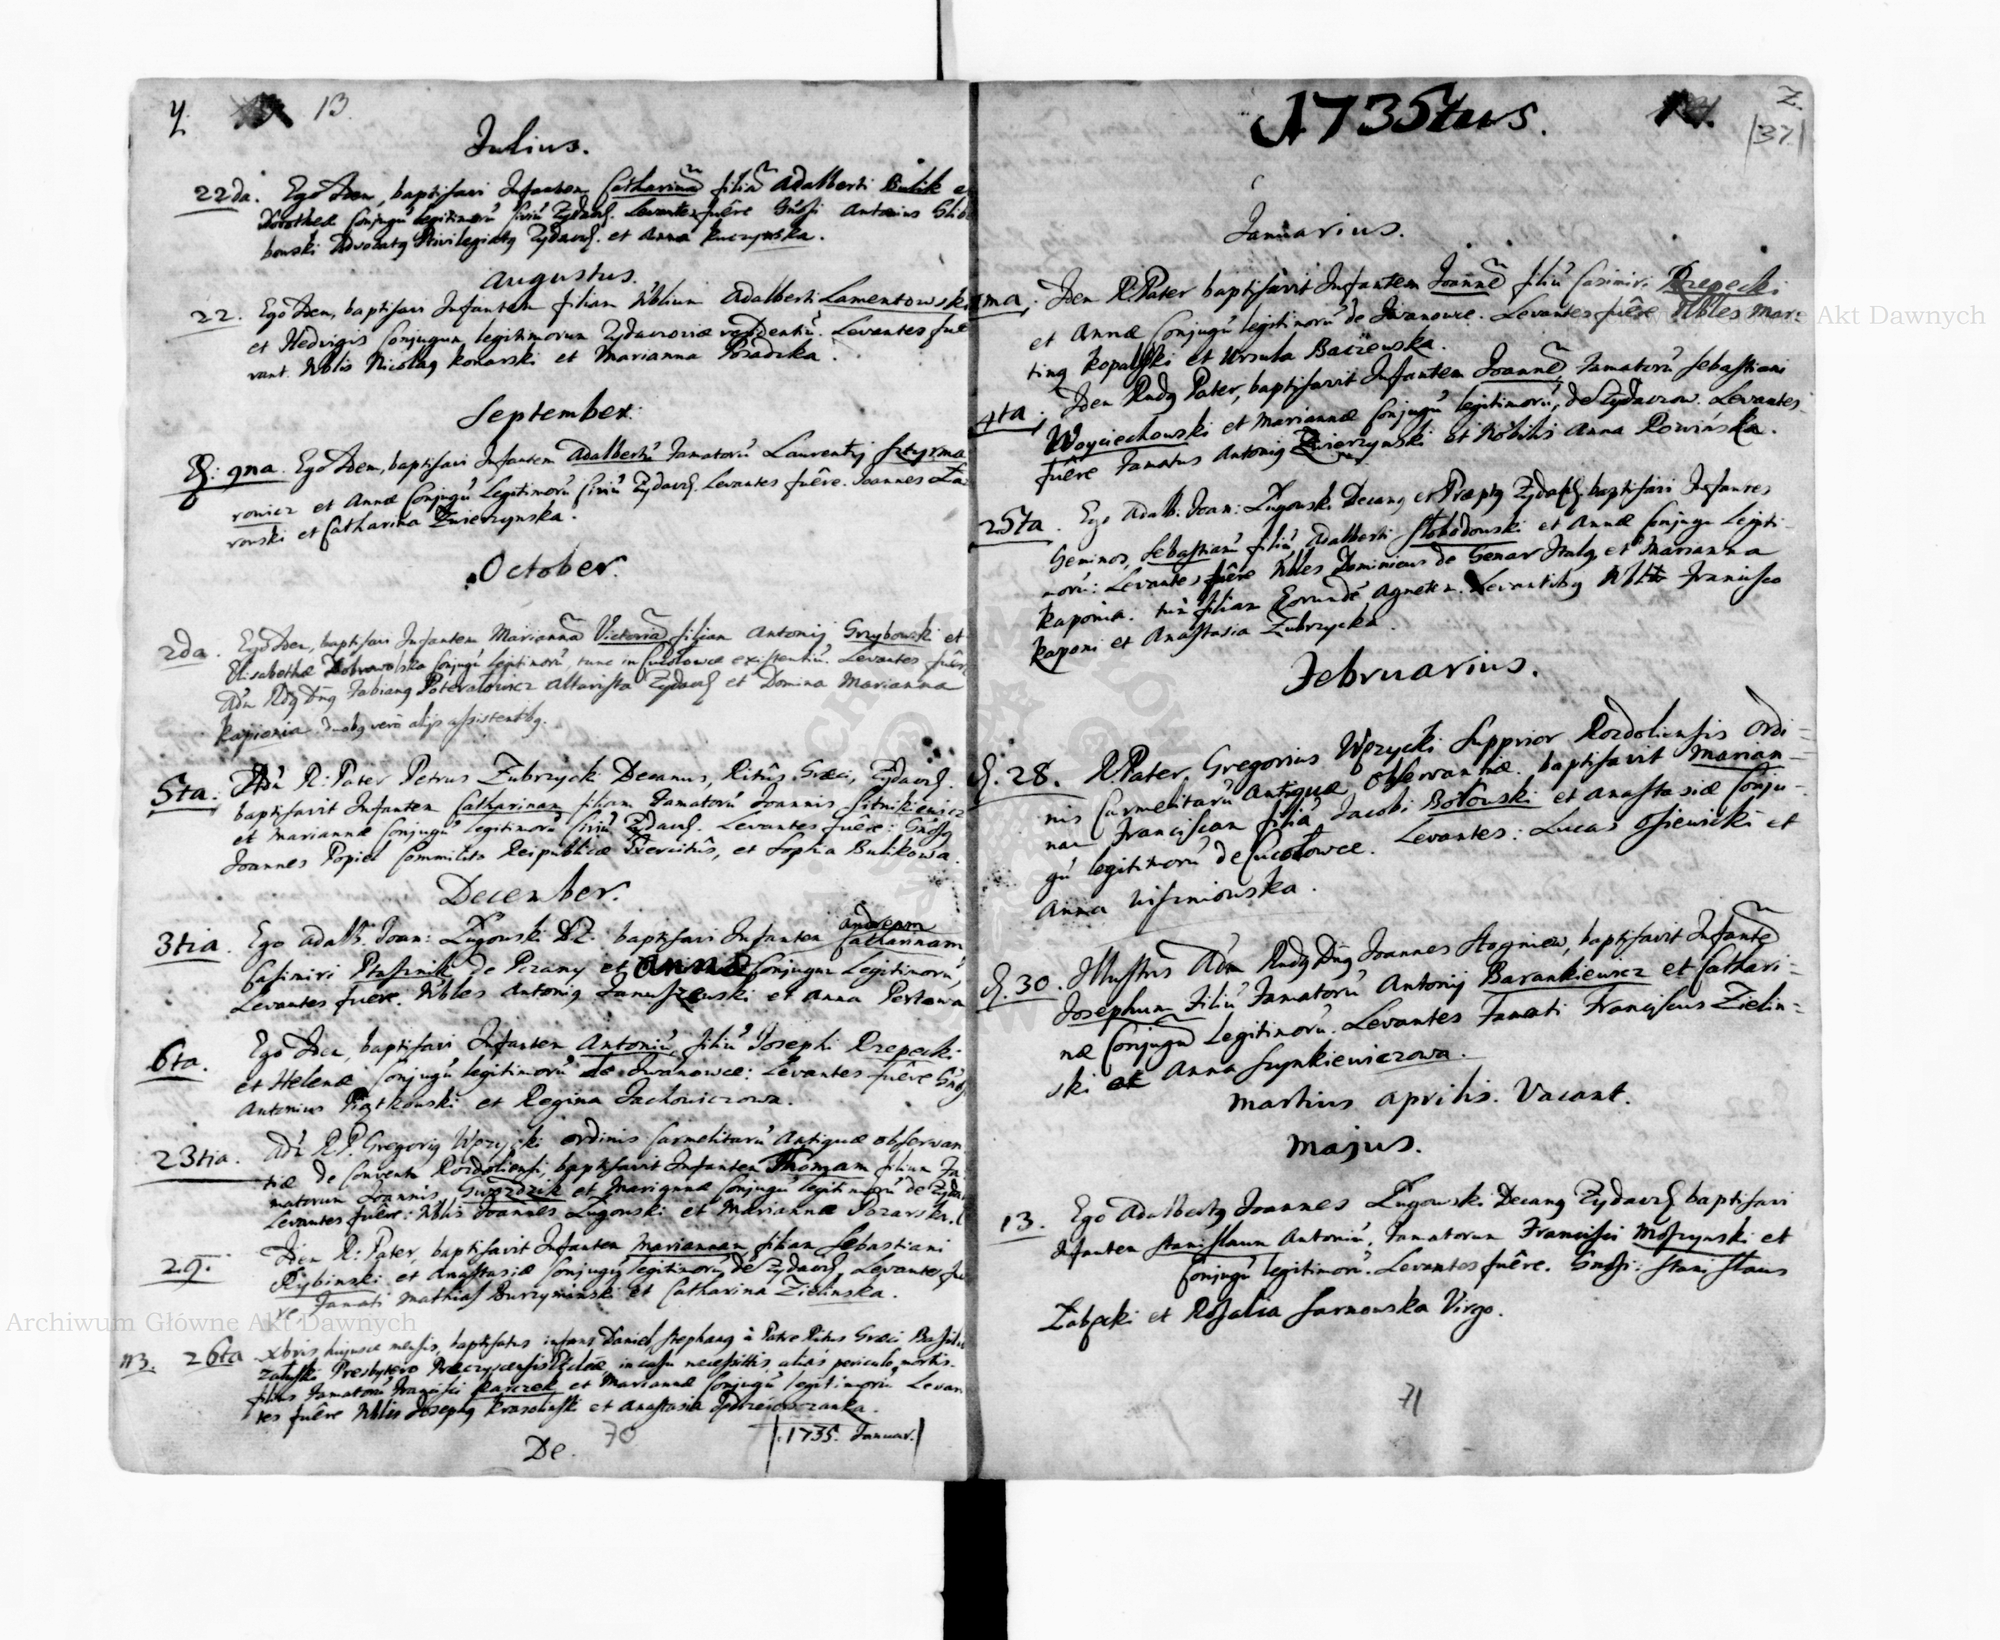 13.
Julius.
22da. Ego Idem, baptisavi Infantem Catharinã filiã Adalberti Bulik et
Dorotheæ Conjugũ legitimorũ Civiũ Zydacz. Levantes fuêre Gñosi Antonius Glibo
bowski Advocatus Privilegiatus Zydacz. et Anna Kuczynska.
Augustus.
22. Ego Idem, baptisavi Infantem filiam Nobilium Adalberti Lamentowski
et Hedvigis Conjugum legitimorum Zydaczoviæ residentiũ. Levantes fue
rant. Nblis Nicolaus Konarski et Marianna
September.
9na. Ego Idem, baptisavi Infantem Adalbertũ Famatorũ Laurentij Sztyrma
rowicz et Annæ Conjugũ Legitimorũ Civiũ Zydacz. Levantes fuêre. Joannes Za
rowski et Catharina Zwierzynska.
October.
2da. Ego Idem, baptisavi Infantem Mariannã Victoriã filiam Antonij Grzybowski et
Elisabethæ Dobrowolska Conjugũ legitimorũ, tunc in Cucolowce existentiũ. Levantes fuêre
Adm Rdus Dñus Fabianus Altarista Zydacz et Domina Marianna
Kaponia duobus verò alijs assistentibus.
5ta. Adm R: Pater Petrus Zubrzycki Decanus, Ritûs Græci, Zydacz.
baptisavit Infantem Catharinam filiam Famatorũ Joannis Sitnikiewicz
et Mariannæ Conjugũ legitimorũ Civiũ Zydacz. Levantes fuêre: Gnosus
Joannes Popiel Commilito Reipublicæ Exercitûs, et Sophia Bulikowa.
December.
3tia. Ego Adalb. Joan: Ługowski DZ. baptisavi Infantem Andream Catharinam
Casimiri Ptasznik de Pczany et Annæ Conjugum Legitimorũ,
Levantes fuêre. Nbles Antonius Januszewski et Anna
6ta. Ego Idem, baptisavi Infantem Antoniũ, filiũ Josephi Rzepecki
et Helenæ Conjugũ legitimorũ de Iwanowce: Levantes fuêre Gnosus
Antonius Piątkowski et Regina Jachowiczowa.
23tia. Adm R.P. Gregorius Wozycki ordinis Carmelitarũ Antiquæ observan
tiæ de Conventu Rozdoliensi, baptisavit Infantem Thomam filium Fa
matorum Joannis Gwozdzik et Mariannæ Conjugũ legitimorũ de Zydacz
Levantes fuêre: Nblis Joannes Ługowski et Mariannæ
29. Idem R: Pater, baptisavit Infantem Mariannam filiam Sebastiani
Rybinski et Anastasiæ Conjugũ legitimorũ de Zydacz. Levantes fue
re Famati Mathias Burzyminski et Catharina Zielinska.
26ta Xbris hujusce mensis, baptisatus infans Daniel Stephanus à Patre Ritus Græci Basilio
Zaluski Presbytero in casu necessitatis, alias periculo mortis.
filius Famatorũ Francisci Karczek et Mariannæ Conjugũ legitimorũ Levan
tes fuêre Nblis Josephus Krasolaski et Anastasia
|.1735. Januar.|
De. 70
1735tus.
Z.
|37.|
Januarius.
1ma. Idem R.Pater baptisavit Infantem Joannẽ filiũ Casimiri Rzepecki
et Annæ Conjugũ legitimorũ de Iwanowce. Levantes fuêre Nbles Mar:
tinus Kopalski et Ursula Baczewska.
4ta. Idem Rndus Pater, baptisavit Infantem Joannẽ, Famatorũ Sebastiani
Woyciechowski et Mariannæ Conjugũ legitimorũ, de Zydaczow. Levantes
fuêre Famatus Antonius Zwierzynski et Nobilis Anna Rowinska.
25ta. Ego Adalb: Joan: Ługowski Decanus et Præptus Zydacz. baptisavi Infantes
Geminos, Sebastianũ filiũ, Adalberti Slobodowski et Annæ Conjugũ Legiti-
morũ: Levantes fuêre Nbles Dominicus de Genar Italus et Marianna
Kaponia. tũ filiam Eorundẽ Agnetem. Levantibus Nbli Francisco
Kaponi et Anastasia Zubrzycka.
Februarius.
d. 28. R.Pater Gregorius Wozycki Supprior Rozdoliensis Ordi-
nis Carmelitarũ Antiquæ Observantiæ. baptisavit Marian-
nam Franciscam filiã Jacobi Botowski et Anastasiæ Conju-
gũ legitimorũ de Cucolowce. Levantes: Lucas Osiewicki et
Anna Wiszniowska.
d. 30. Illustris Adm Rndus Dñus Joannes Stogniew, baptisavit Infantẽ
Josephum Filiũ Famatorũ Antonij Barankiewicz et Cathari-
næ Conjugũ Legitimorũ. Levantes Famati Franciscus Zielin-
ski et Anna Szynkiewiczowa.
Martius Aprilis. Vacant.
Majus.
13. Ego Adalbertus Joannes Ługowski Decanus Zydacz baptisavi
Infantem Stanislaum Antoniũ, Famatorum Francisci Moszynski et
Conjugũ legitimorũ. Levantes fuêre. Gnosi: Stanislaus
Zabęcki et Rosalia Sarnowska Virgo.
71
Archiwum Główne Akt Dawnych
Akt Dawnych